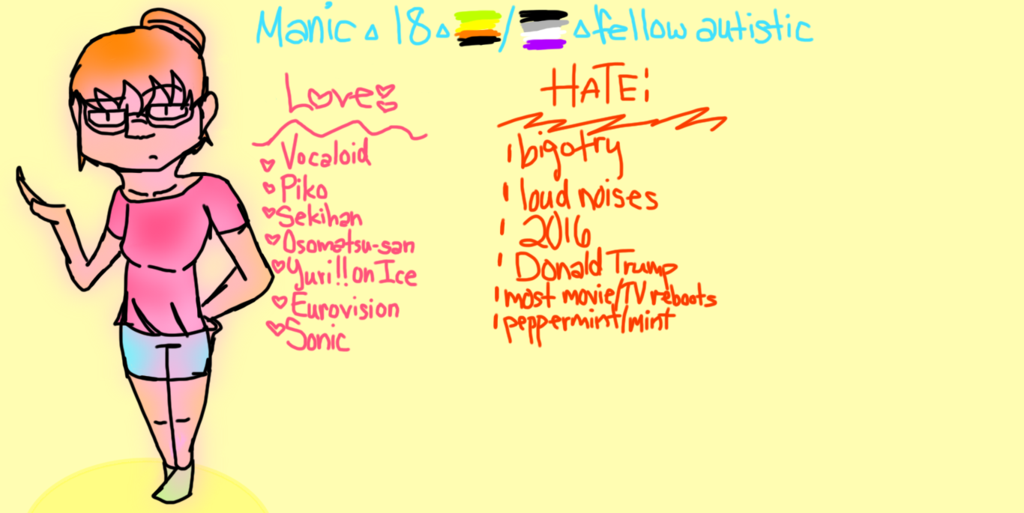 Manic ∆ 18 ∆ / ∆ fellow autistic
Love
Vocaloid
Piko
Sekihan
Osomatsu-san
Yuri!! on Ice
Eurovision
Sonic
HATE:
bigotry
loud noises
2016
Donald Trump
most movie/TV reboots
peppermint/mint